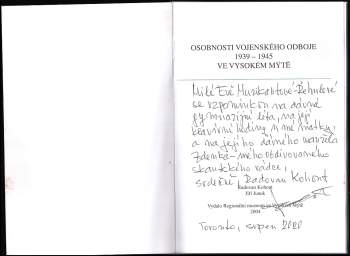 OSOBNOSTI VOJENSKÉHO ODBOJE
1939 – 1945
VE VYSOKÉM MÝTĚ
Milé Evě Muzikantové-Řehulkové
se vzpomínkou na dávná
gymnazijní léta, na její
klavírní hodiny u mé matky
a na jejího dávného
Zdeňka - mého obdivovaného
skautského rádce,
srdečně, Radovan Kohout
Radovan Kohout
Jiří Junek
Vydalo Regionální muzeum ve Vysokém Mýtě
2004
Toronto, srpen